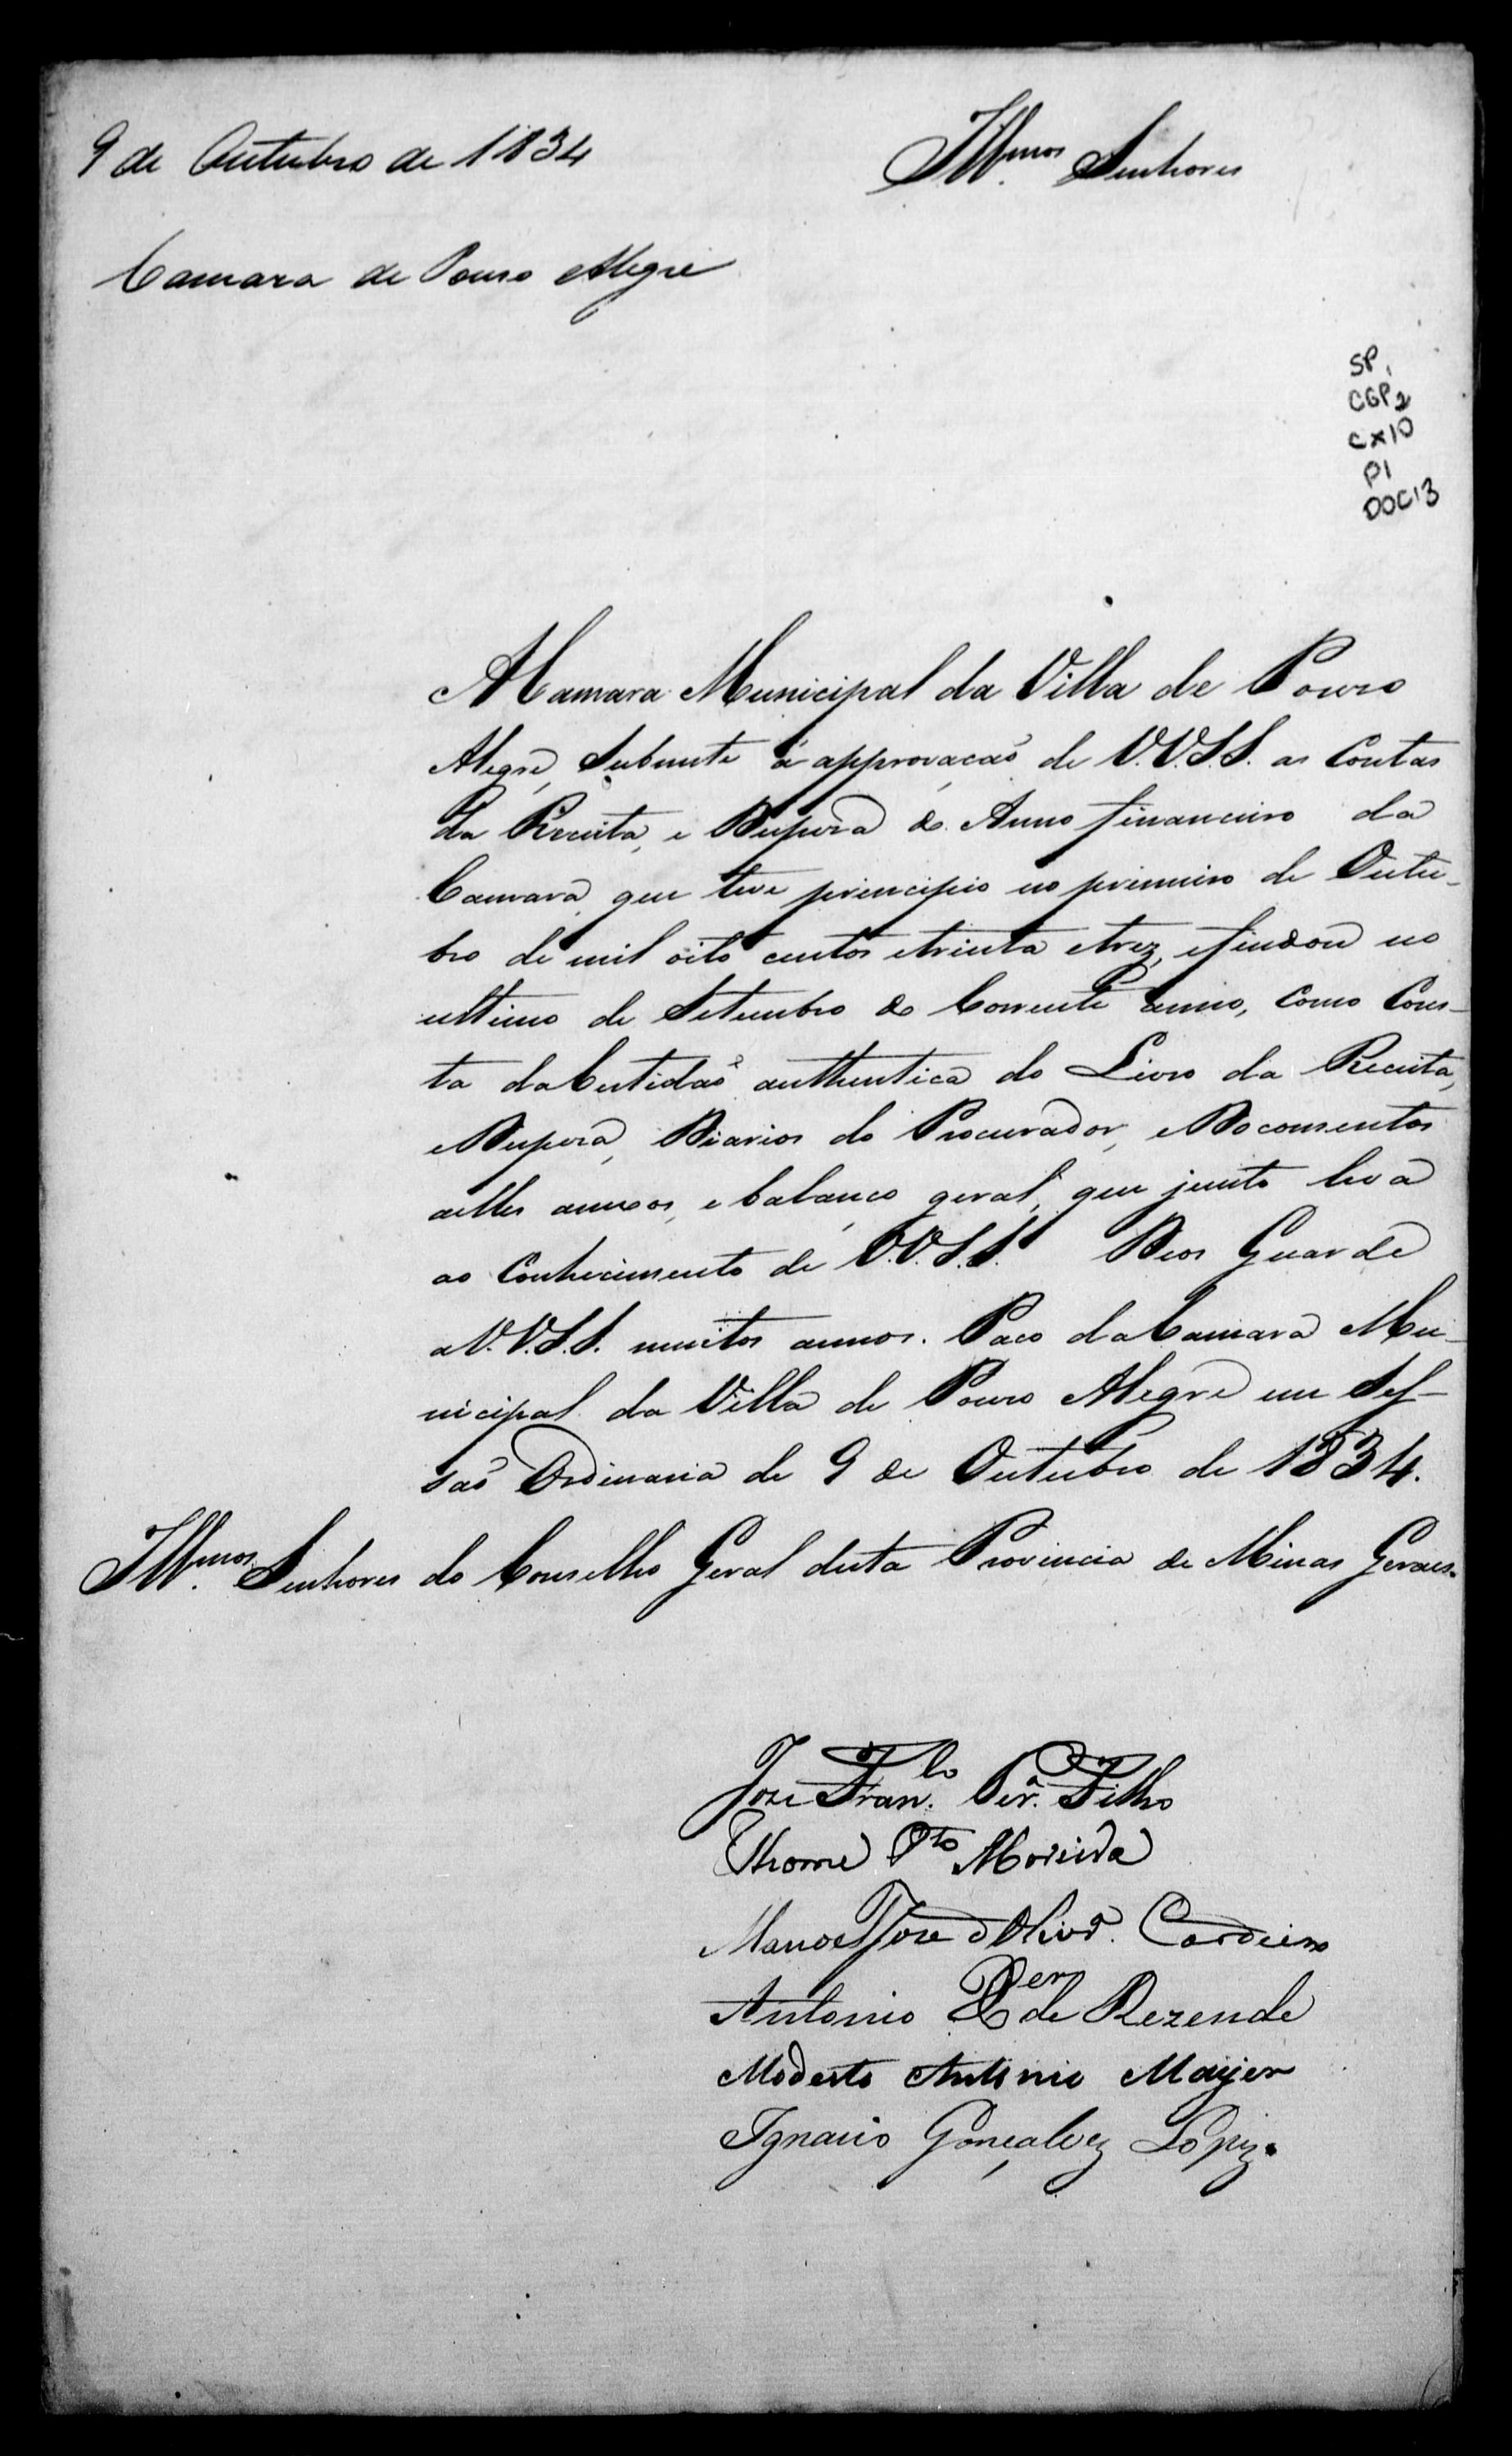 9 de Outubro de 1834
Ill.mos Senhores
Camara de Pouso Alegre
SP1
CGP2
CX10
P1
DOC13
A Camara Municipal da Villa de Pouso
Alegre, Submete á approvação de V.V.S.S. as Contas
da Receita, e Despesa do Anno financeiro da
Camara, que teve principio no primeiro de Outu-
bro de mil oito centos etrinta etrez, efindou no
ultimo de Setembro do Corrente anno, como Cons-
ta daCertidaõ authentica do Livro da Receita,
eDespesa, Diarios do Procurador, eDocomentos
aelles annexos, e balanço geral, que junto leva
ao Conhecimento de V.V.S.S. Deos Guarde
aV.V.S.S. muitos annos. Paço daCamara Mu-
nicipal da Villa de Pouso Alegre em Ses-
saõ Ordinaria de 9 de Outubro de 1834.
Ill.mos Senhores do Conselho Geral desta Provincia de Minas Geraes.
Joze Fran.co Per.a Filho
Thome P.to Moreira
Manoel Joze d'Oliv.ra Cordeiro
Antonio de Rezende
Modesto Antonio Mayer
Ignacio Gonçalvez Lopez.